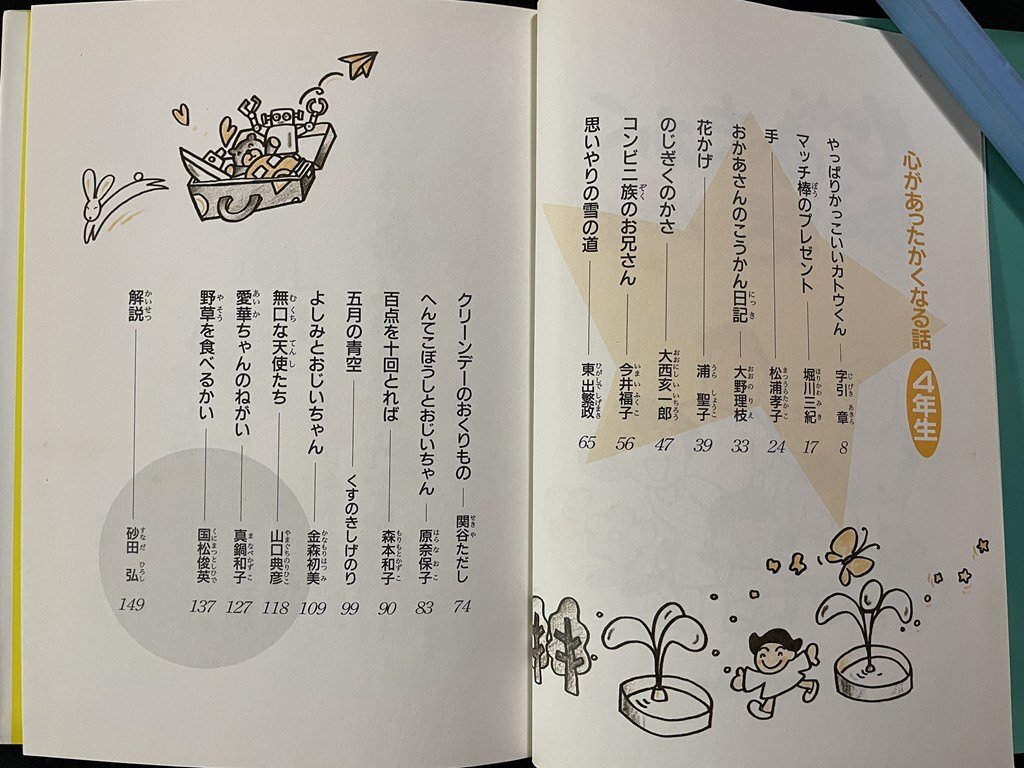 心があったかくなる話 4年生
やっぱりかっこいいカトウくん 字引 章 8
マッチ棒のプレゼント 堀川三紀 17
手 松浦孝子 24
おかあさんのこうかん日記 大野理枝 33
花かげ 浦 聖子 39
のじぎくのかさ 大西亥一郎 47
コンビニ族のお兄さん 今井福子 56
思いやりの雪の道 東出繁政 65
クリーンデーのおくりもの 関谷ただし 74
へんてこぼうしとおじいちゃん 原奈保子 83
百点を十回とれば 森本和子 90
五月の青空 くすのきしげのり 99
よしみとおじいちゃん 金森初美 109
無口な天使たち 山口典彦 118
愛華ちゃんのねがい 真鍋和子 127
野草を食べるかい 国松俊英 137
解説 砂田 弘 149